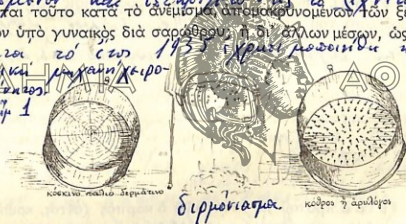 καὶ τοῦτο κατὰ τὸ ἀνέμισμα, ἀπομακρυνομένων τῶν
ὑπὸ γυναικὸς διὰ σαρώθρου, ἢ δι' ἄλλων μέσων, ὡς
τὸ ἔτος 1935 ἐχρησιμοποιήθη
μηχανὴ χειρο-
κίνητος
1
ΗΜΙΑ ΑΘ
κόσκινο παλιὸ δερμάτινο
διρμόνιασμα
κόθρος ἢ ἀριλόγος